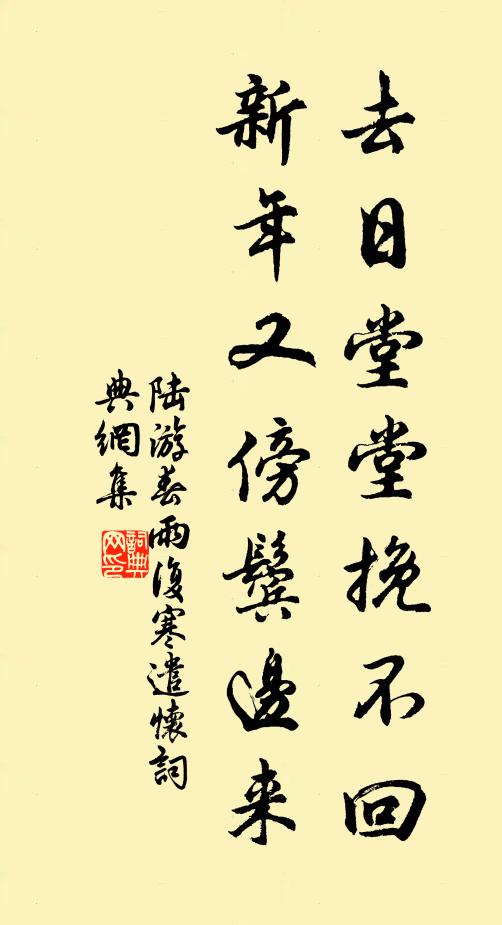 去日堂堂挽不回
新年又傍鬓邊来
陆游春雨復寒遣懷詞
典網集
詞典
网印